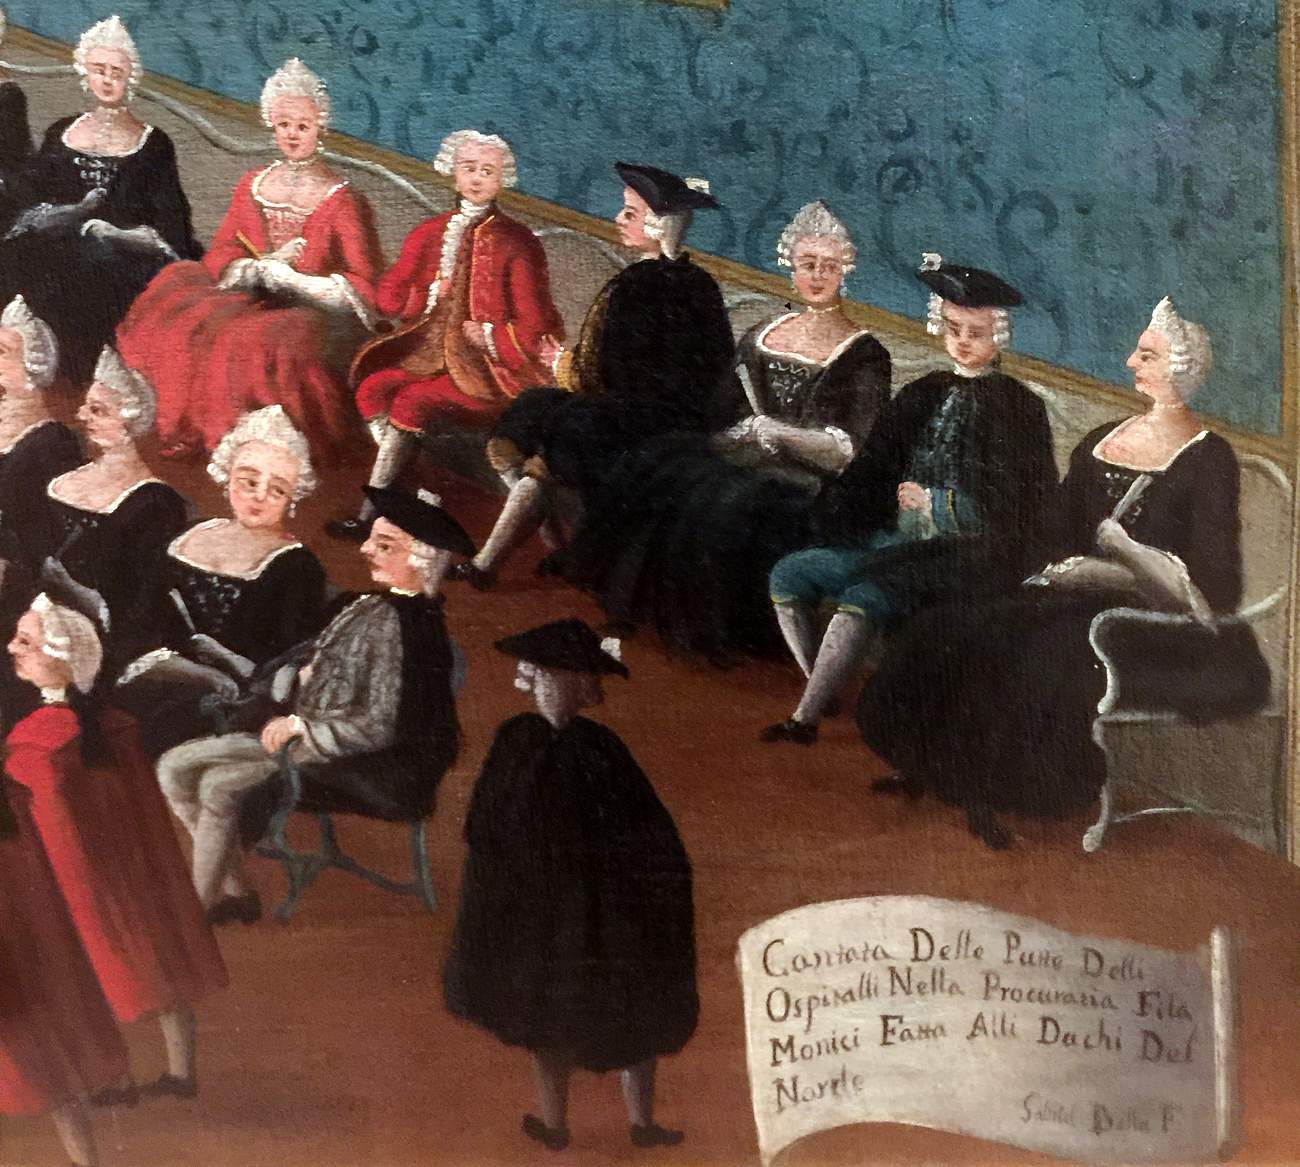 Cantata Delle Putte Delli
Ospitalli Nella Procuratia Fila
Monici Fatta Alli Duchi Del
Norde
Gabriel Bella F